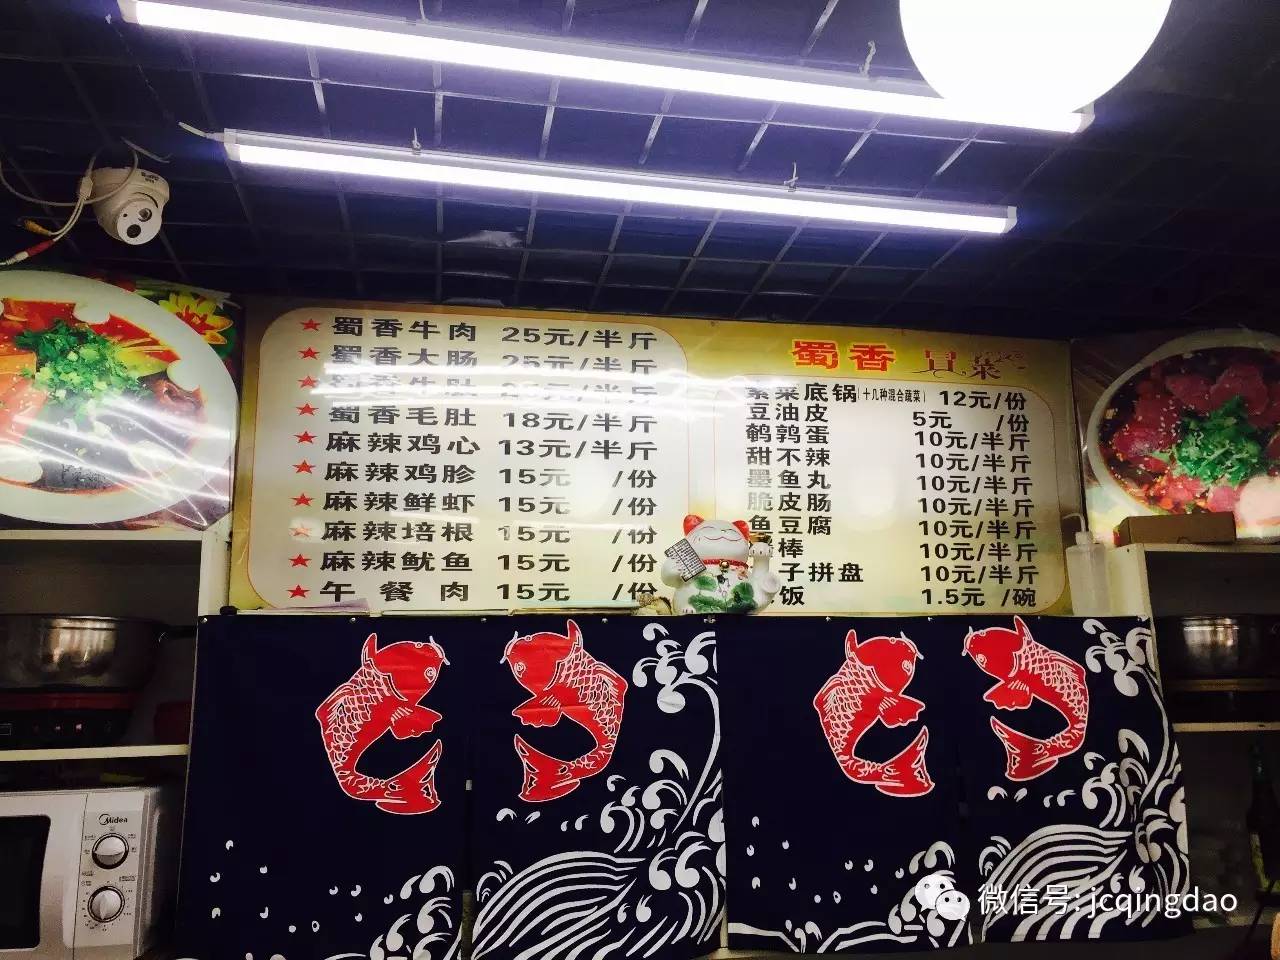 ★ 蜀香牛肉 25元/半斤
★ 蜀香大肠 25元/半斤
★ 蜀香牛肚 25元/半斤
★ 蜀香毛肚 18元/半斤
★ 麻辣鸡心 13元/半斤
★ 麻辣鸡胗 15元 /份
★ 麻辣鲜虾 15元 /份
★ 麻辣培根 15元 /份
★ 麻辣鱿鱼 15元 /份
★ 午餐肉 15元 /份
蜀香 冒菜
素菜底锅(十几种混合蔬菜) 12元/份
豆油皮 5元 /份
鹌鹑蛋 10元/半斤
甜不辣 10元/半斤
墨鱼丸 10元/半斤
脆皮肠 10元/半斤
鱼豆腐 10元/半斤
棒 10元/半斤
子拼盘 10元/半斤
饭 1.5元 /碗
Midea
微信号: jcqingdao